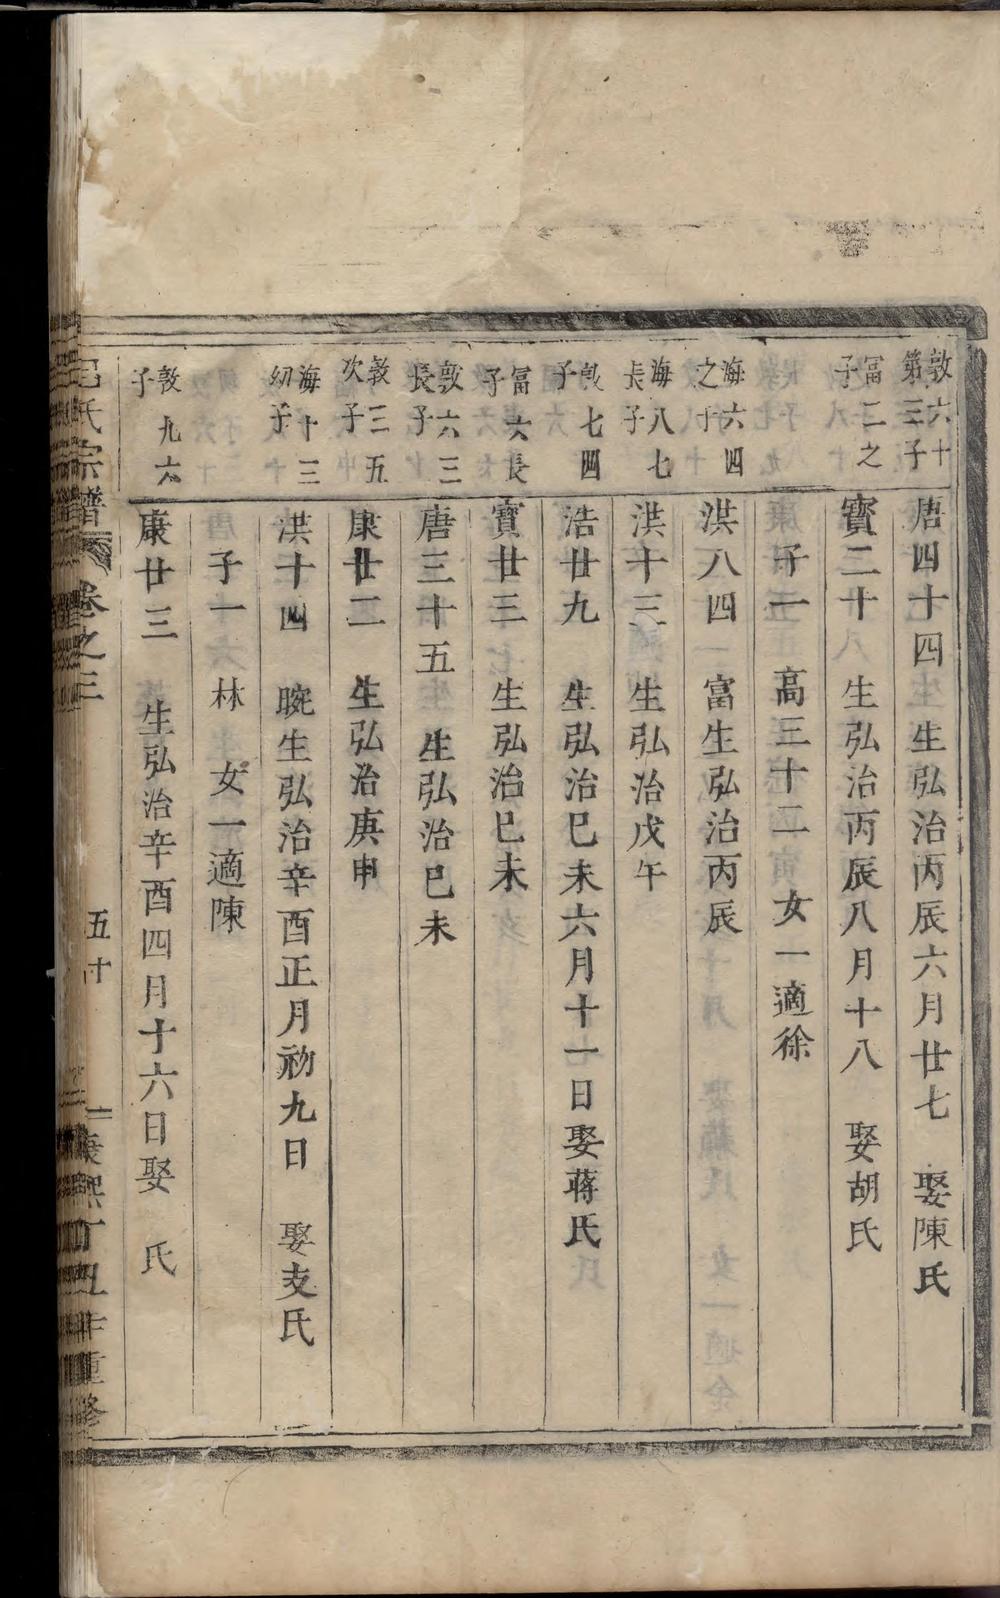 敦六十
第三子
唐四十四　生弘治丙辰六月廿七　娶陳氏
冨二之
子
寳二十　生弘治丙辰八月十八　娶胡氏
子一　高三十二　女一適徐
海六四
之子
洪八四　富生弘治丙辰
海八七
長子
洪十三　生弘治戊午
敦七四
子
浩廿九　生弘治巳未六月十一日娶蔣氏
冨六長
子
寳廿三　生弘治巳未
敦六三
長子
唐三十五　生弘治巳未
敦三五
次子
康廿二　生弘治庚申
海十三
幼子
洪十四　晼生弘治辛酉正月初九日　娶支氏
子一　林　女一適陳
敦九六
子
康廿三　生弘治辛酉四月十六日娶　氏
氏宗譜　卷之三　五十　康熙丁丑年重修